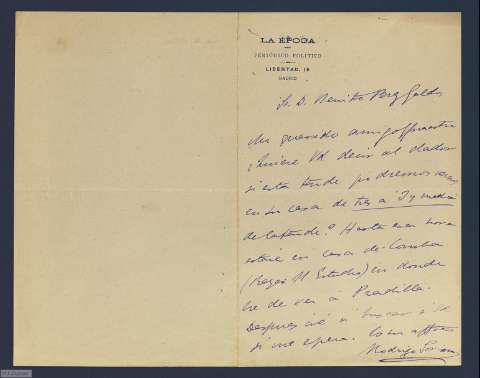 LA ÉPOCA
PERIÓDICO POLÍTICO
LIBERTAD, 18
MADRID
Sr. D. Benito Perez Galdos
Mi querido amigo y maestro
¿Quiere Vd decir al dador
si esta tarde podremos vernos
en su casa de tres a 3 y media
de la tarde? Hasta esa hora
estaré en casa de
(Reyes Estudio) en donde
he de ver á Pradilla.
Despues iré á buscar á Vd
si me espera. Su affmo
Rodrigo Soriano